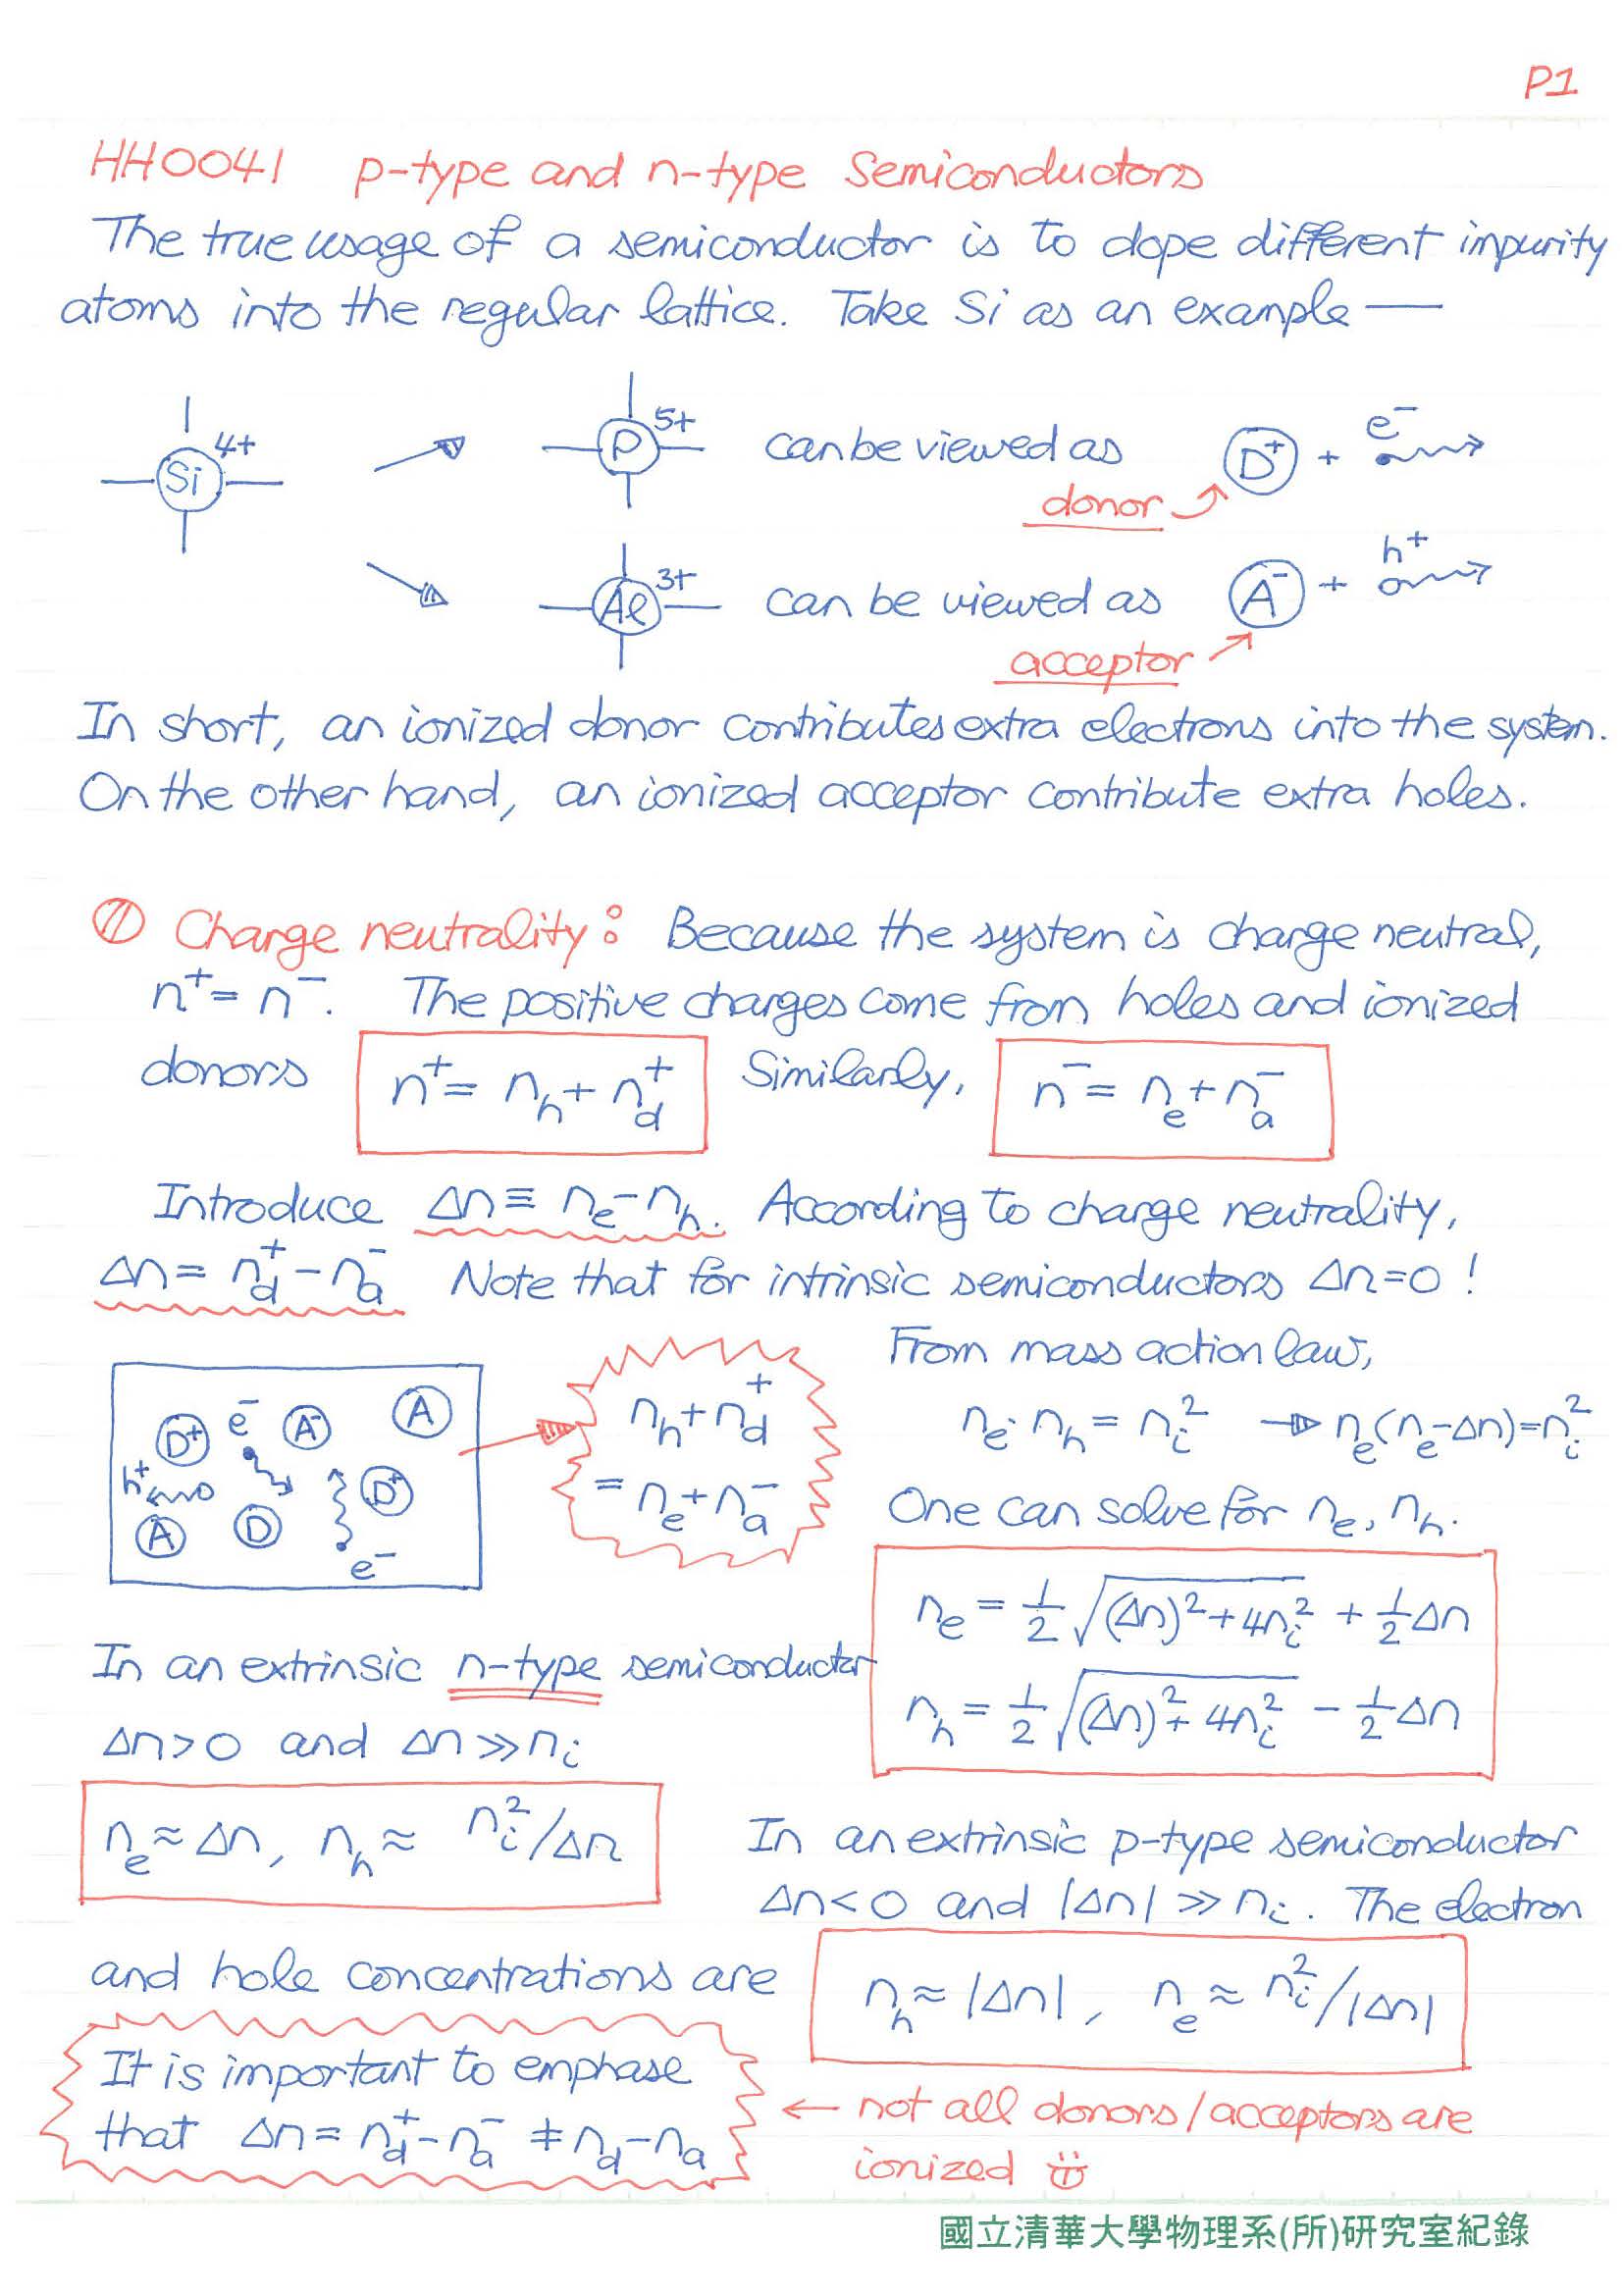 P1
HH0041 p-type and n-type Semiconductors
The true usage of a semiconductor is to dope different impurity
atoms into the regular lattice. Take Si as an example —
Si 4+
P 5+ can be viewed as D⁺ + e⁻
donor
Al 3+ can be viewed as A⁻ + h⁺
acceptor
In short, an ionized donor contributes extra electrons into the system.
On the other hand, an ionized acceptor contribute extra holes.
① Charge neutrality: Because the system is charge neutral,
n⁺ = n⁻. The positive charges come from holes and ionized
donors n⁺ = n_h + n_d⁺ Similarly, n⁻ = n_e + n_a⁻
Introduce Δn ≡ n_e − n_h. According to charge neutrality,
Δn = n_d⁺ − n_a⁻ Note that for intrinsic semiconductors Δn = 0 !
D⁺ e⁻ A⁻ A
h⁺ D⁺
A D e⁻
n_h + n_d⁺
= n_e + n_a⁻
From mass action law,
n_e · n_h = n_i² → n_e(n_e − Δn) = n_i²
One can solve for n_e, n_h.
n_e = ½ √((Δn)² + 4n_i²) + ½ Δn
n_h = ½ √((Δn)² + 4n_i²) − ½ Δn
In an extrinsic n-type semiconductor
Δn > 0 and Δn ≫ n_i
n_e ≈ Δn, n_h ≈ n_i²/Δn
In an extrinsic p-type semiconductor
Δn < 0 and |Δn| ≫ n_i. The electron
and hole concentrations are n_h ≈ |Δn|, n_e ≈ n_i²/|Δn|
It is important to emphase
that Δn = n_d⁺ − n_a⁻ ≠ n_d − n_a
← not all donors/acceptors are
ionized
國立清華大學物理系(所)研究室紀錄